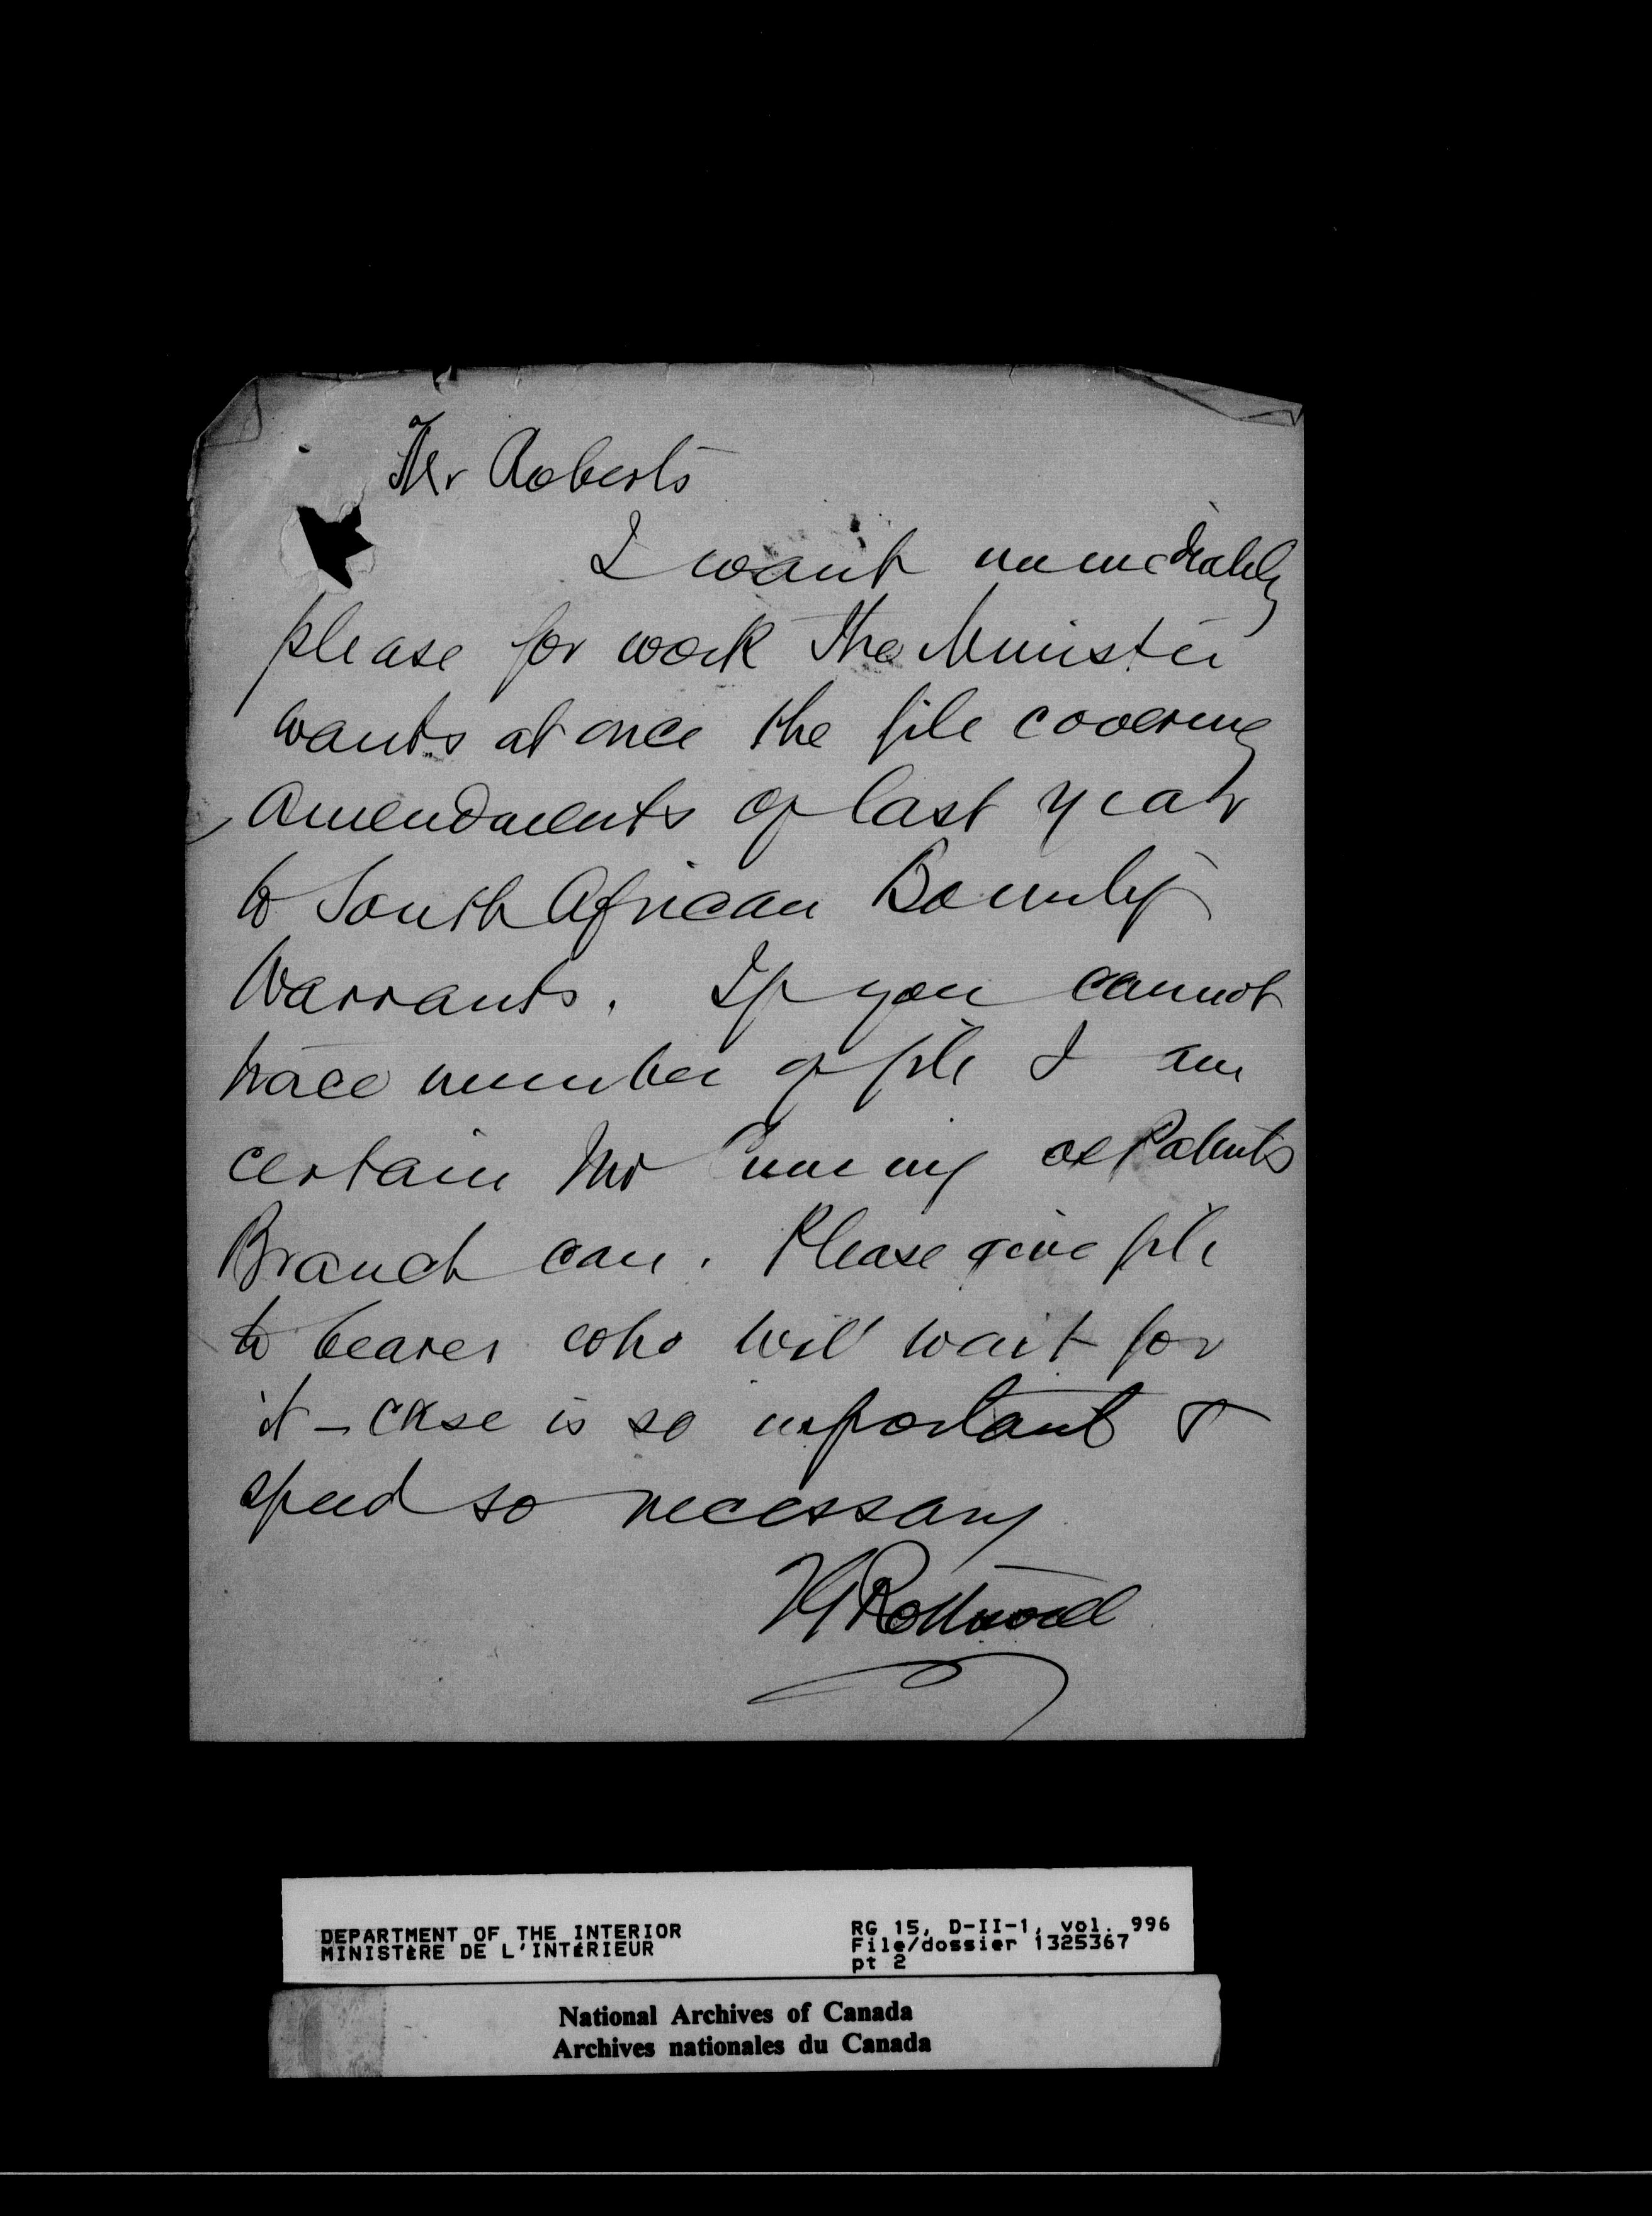 Mr Roberts
I want immediately
please for work the Minister
wants at once the file covering
amendments of last year
to South African Bounty
Warrants. If you cannot
trace number of file I am
certain Mr of Patents
Branch can. Please give file
to bearer who will wait for
it - case is so important &
speed so necessary
DEPARTMENT OF THE INTERIOR
MINISTÈRE DE L'INTÉRIEUR
RG 15, D-II-1, vol. 996
File/dossier 1325367
pt 2
National Archives of Canada
Archives nationales du Canada